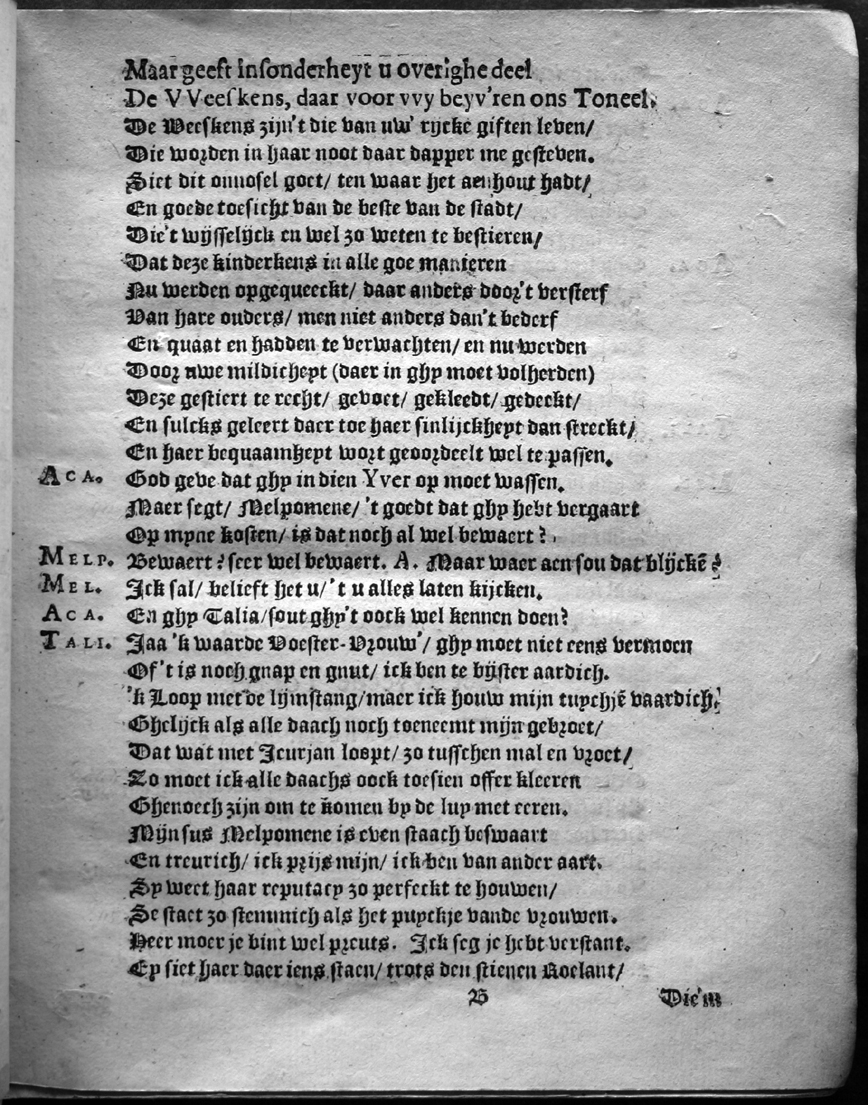 Maar geeft insonderheyt u overighe deel
De VVeeskens, daar voor vvy beyv'ren ons Toneel.
De Weeskens zijn't die van uw' rijcke giften leven/
Die worden in haar noot daar dapper me gesteven.
Siet dit onnosel goet/ ten waar het aenhout hadt/
En goede toesicht van de beste van de stadt/
Die't wijsselijck en wel zo weten te bestieren/
Dat deze kinderkens in alle goe manieren
Nu werden opgequeeckt/ daar anders door't versterf
Van hare ouders/ men niet anders dan't bederf
En quaat en hadden te verwachten/ en nu werden
Door uwe mildicheyt (daer in ghy moet volherden)
Deze gestiert te recht/ gevoet/ gekleedt/ gedeckt/
En sulcks geleert daer toe haer sinlijckheyt dan streckt/
En haer bequaamheyt wort geoordeelt wel te passen.
ACA. God geve dat ghy in dien Yver op moet wassen.
Maer segt/ Melpomene/ 't goedt dat ghy hebt vergaart
Op myne kosten/ is dat noch al wel bewaert?
MELP. Bewaert? seer wel bewaert. A. Maar waer aen sou dat blijckē?
MEL. Ick sal/ belieft het u/ 't u alles laten kijcken.
ACA. En ghy Talia/sout ghy't oock wel kennen doen?
TALI. Jaa 'k waarde Voester-Vrouw'/ ghy moet niet eens vermoen
Of't is noch gnap en gnut/ ick ben te bijster aardich.
'k Loop met de lijmstang/maer ick houw mijn tuychjē vaardich.
Ghelijck als alle daach noch toeneemt mijn gebroet/
Dat wat met Jeurjan loopt/ zo tusschen mal en vroet/
Zo moet ick alle daachs oock toesien offer kleeren
Ghenoech zijn om te komen by de luy met eeren.
Mijn sus Melpomene is even staach beswaart
En treurich/ ick prijs mijn/ ick ben van ander aart.
Sy weet haar reputacy zo perfeckt te houwen/
Se staet zo stemmich als het puyckje vande vrouwen.
Heer moer je bint wel preuts. Ick seg je hebt verstant.
Ey siet haer daer iens staen/ trots den stienen Roelant/
B Die'm